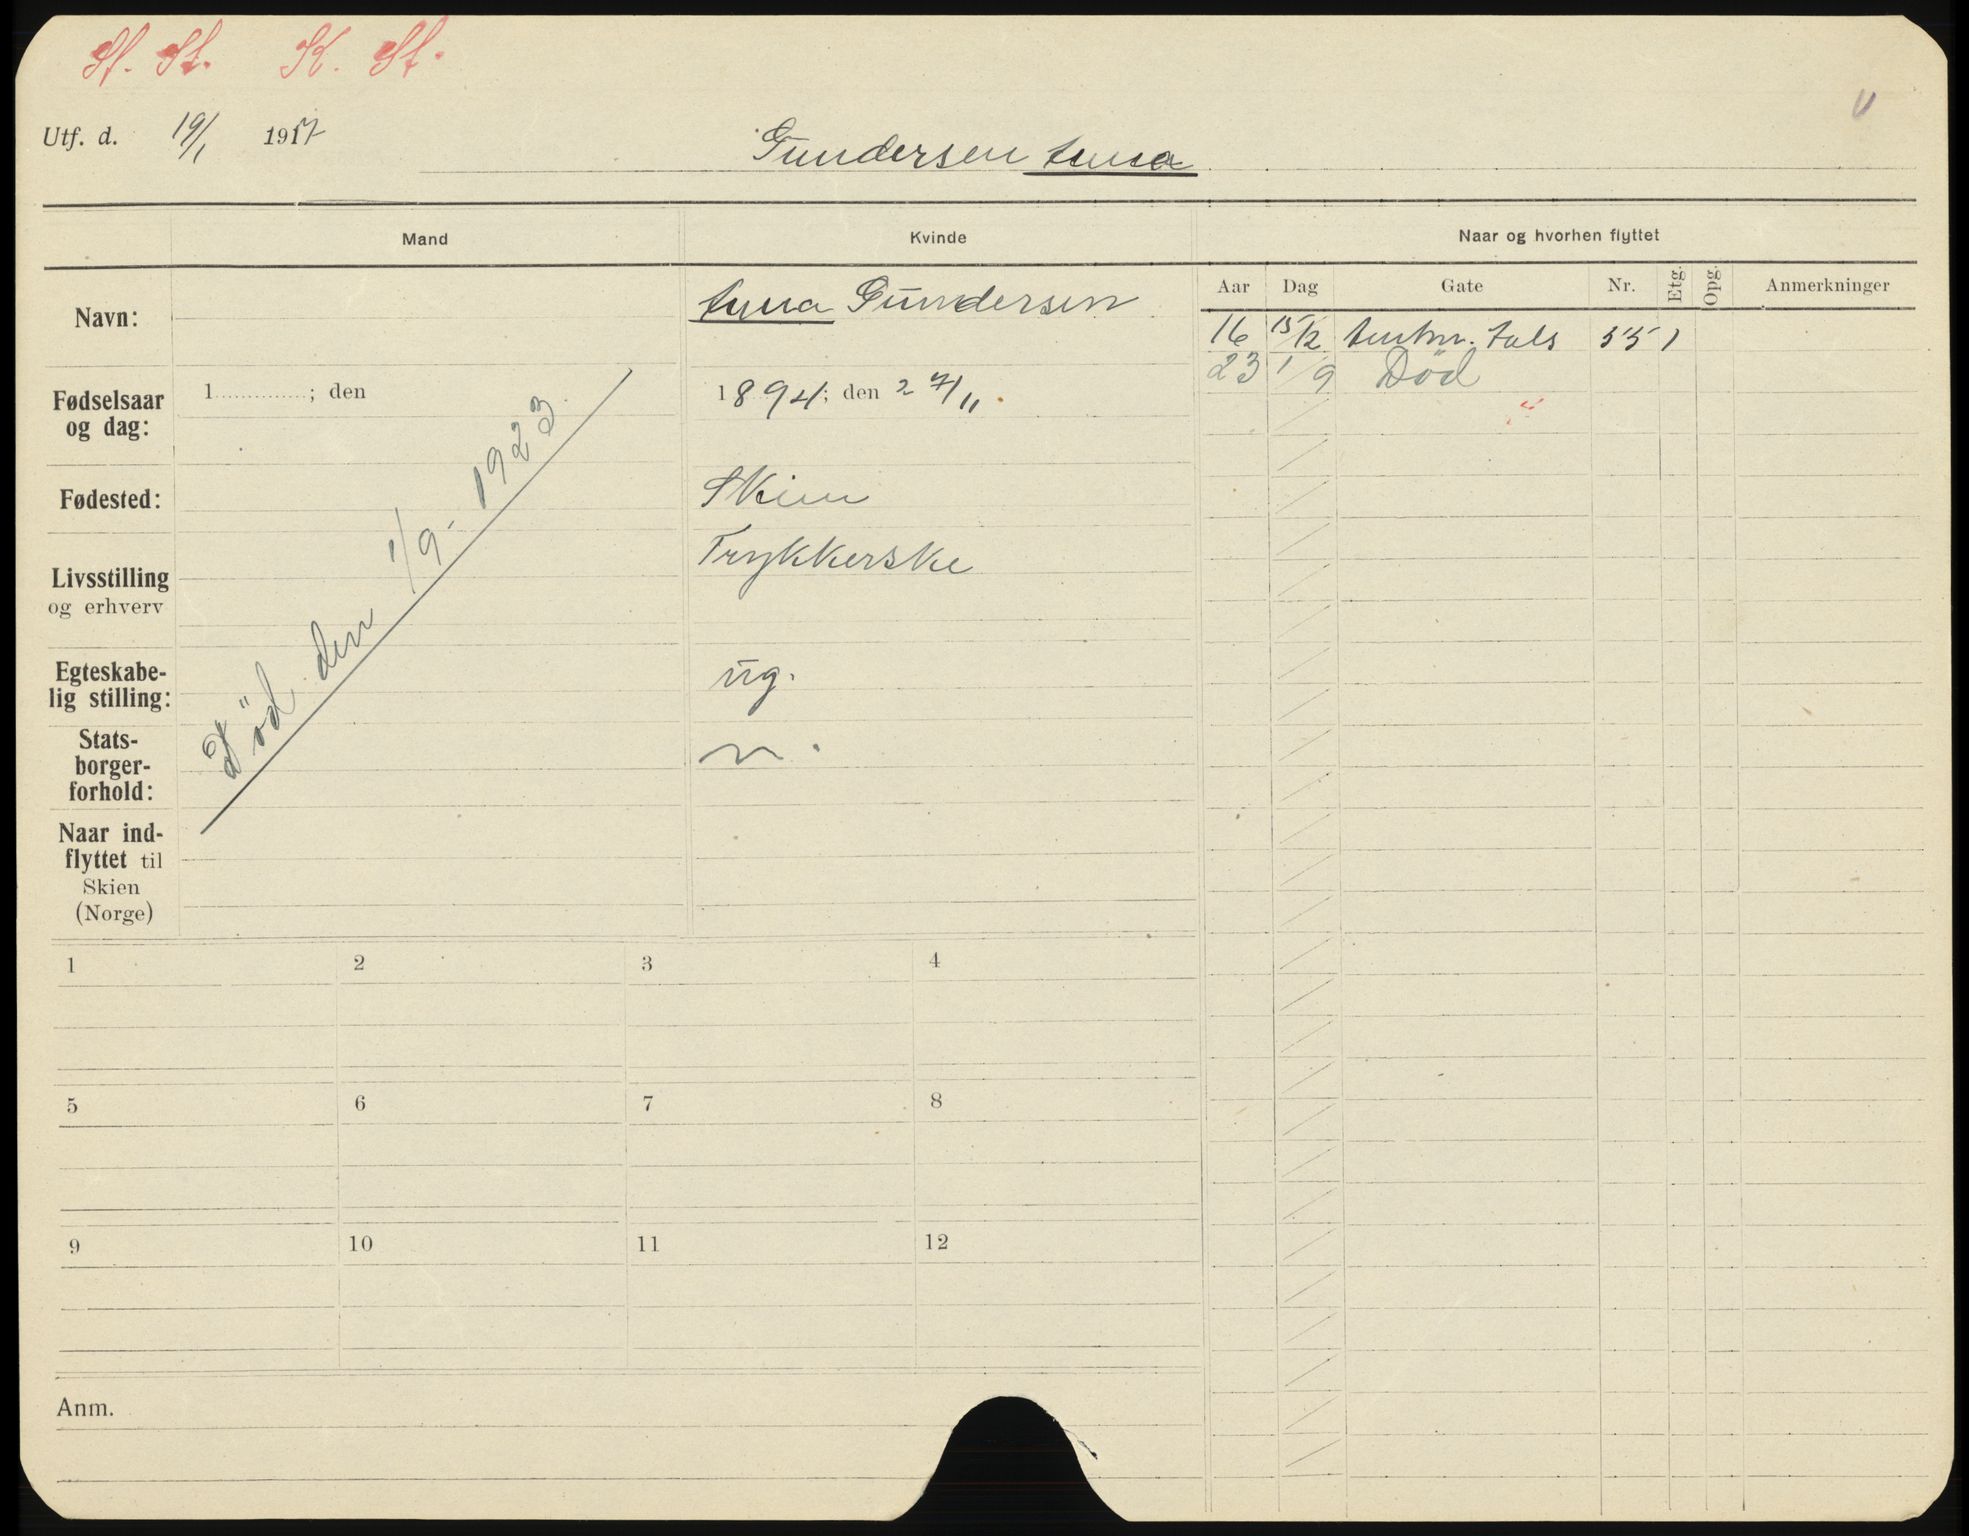 St. St. K. St.
Utf. d. 19/1 1917
Gundersen Anna
Mand
Kvinde
Naar og hvorhen flyttet
Navn:
Anna Gundersen
Aar Dag Gate Nr. Etg. Opg. Anmerkninger
16 15/12 Amtm. Aals 55 1
23 1/9 Død
Fødselsaar
og dag:
1 ; den
1894; den 27/11.
Fødested:
Skien
Livsstilling
og erhverv
Trykkerske
Egteskabe-
lig stilling:
ug.
Stats-
borger-
forhold:
n.
Død den 1/9 - 1923.
Naar ind-
flyttet til
Skien
(Norge)
1 2 3 4
5 6 7 8
9 10 11 12
Anm.